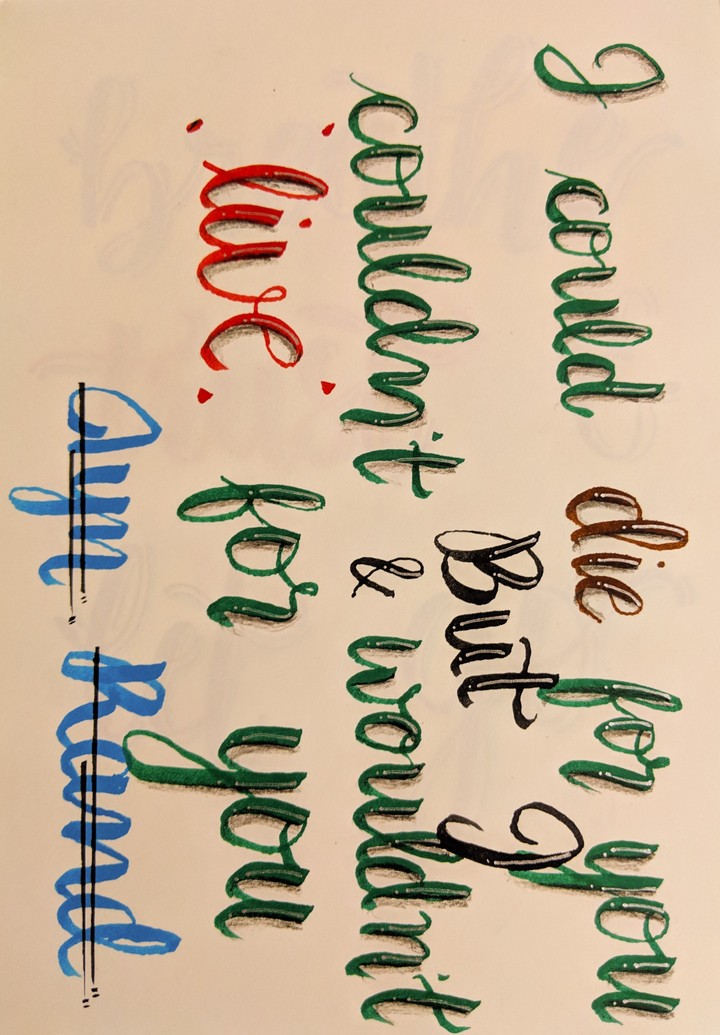 I could die for you
But I
couldn't & wouldn't
live for you
Ayn Rand